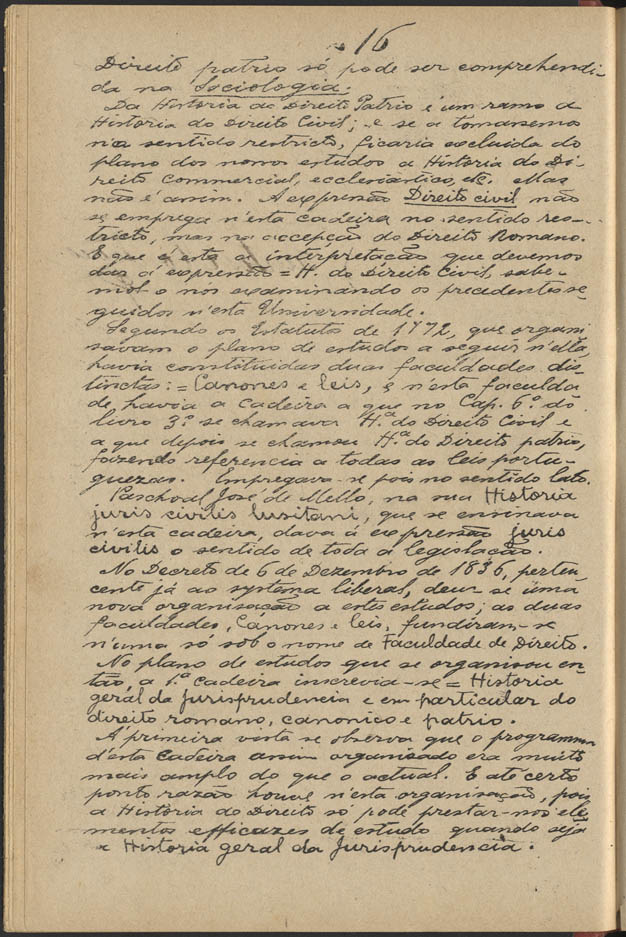 16
Direito patrio só pode ser comprehendi-
da na Sociologia.
Da Historia do Direito Patrio é um ramo a
Historia do Direito Civil; e se a tomassemos
n'a sentido restricto, ficaria excluida do
plano dos nossos estudos a Historia do Di-
reito Commercial, ecclesiastico, etc. Mas
não é assim. A expressão Direito civil não
se emprega n'esta cadeira no sentido res-
tricto, mas na accepção do Direito Romano.
E que é esta a interpretação que devemos
dar á expressão = H. do Direito Civil, sabe-
mol-o nós examinando os precedentes se-
guidos n'esta Universidade.
Segundo os Estatutos de 1772, que organi
savam o plano de estudos a seguir n'ella,
havia constituidas duas faculdades dis-
tinctas: = Canones e Leis, e n'esta faculda
de, havia a cadeira a que no Cap. 6º do
livro 3º se chamava H.ª do Direito Civil e
a que depois se chamou H.ª do Direito patrio,
fazendo referencia a todas as leis portu-
guezas. Empregava-se pois no sentido lato.
Paschoal José de Mello, na sua Historia
juris civilis lusitani, que se ensinava
n'esta cadeira, dava á expressão juris
civilis o sentido de toda a legislação.
No Decreto de 6 de Dezembro de 1836, perten
cente já ao systema liberal, deu-se uma
nova organisação a estes estudos; as duas
faculdades, Cánones e Leis, fundiram-se
n'uma só sob o nome de Faculdade de Direito.
No plano de estudos que se organisou en-
tão, a 1.ª cadeira inscrevia-se = Historia
geral da Jurisprudencia e em particular do
direito romano, canonico e patrio.
Á primeira vista se observa que o programma
d'esta cadeira assim organisado era muito
mais amplo do que o actual. E até certo
ponto razão houve n'esta organisação, pois
a Historia do Direito só póde prestar-nos ele
mentos efficazes de estudo quando seja
a Historia geral da Jurisprudencia.